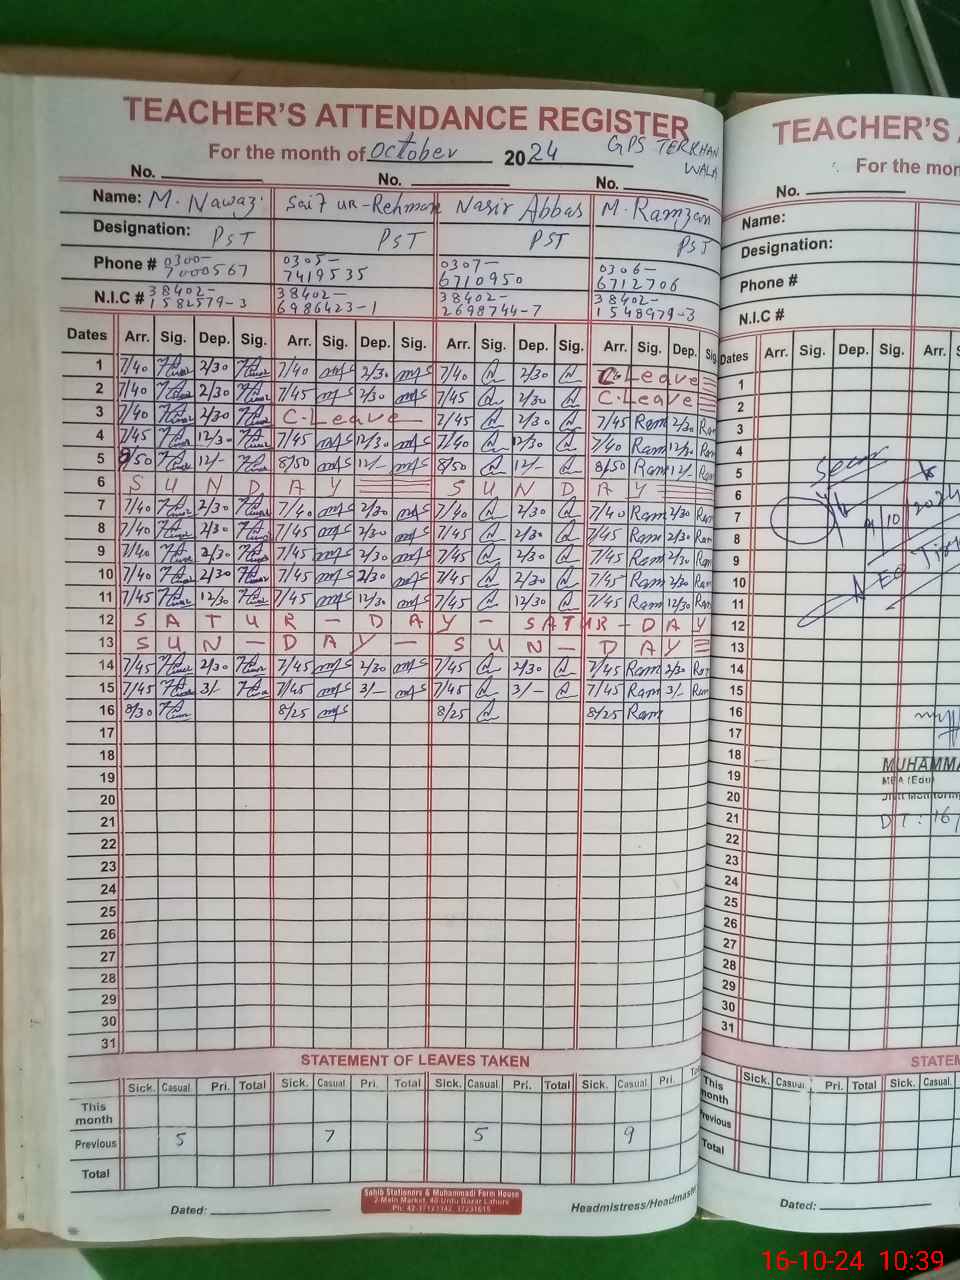 TEACHER'S ATTENDANCE REGISTER
For the month of October 2024 GPS TERKHAN WALA
No. No. No.
Name: M. Nawaz Saif ur-Rehman Nasir Abbas M. Ramzan
Designation: PST PST PST PST
Phone # 0300-7000567 0305-7419535 0307-6710950 0306-6712706
N.I.C # 38402-1582579-3 38402-6986423-1 38402-2698744-7 38402-1548979-3
Dates Arr. Sig. Dep. Sig. Arr. Sig. Dep. Sig. Arr. Sig. Dep. Sig. Arr. Sig. Dep. Sig.
1 7/40 2/30 7/40 2/30 7/40 2/30 C. Leave
2 7/40 2/30 7/45 2/30 7/45 2/30 C. Leave
3 7/40 2/30 C. Leave 7/45 2/30 7/45 Ram 2/30 Ram
4 7/45 12/30 7/45 12/30 7/40 12/30 7/40 Ram 12/30 Ram
5 8/50 12/- 8/50 12/- 8/50 12/- 8/50 Ram 12/- Ram
6 SUNDAY SUNDAY
7 7/40 2/30 7/40 2/30 7/40 2/30 7/40 Ram 2/30 Ram
8 7/40 2/30 7/45 2/30 7/45 2/30 7/45 Ram 2/30 Ram
9 7/40 2/30 7/45 2/30 7/45 2/30 7/45 Ram 2/30 Ram
10 7/40 2/30 7/45 2/30 7/45 2/30 7/45 Ram 2/30 Ram
11 7/45 12/30 7/45 12/30 7/45 12/30 7/45 Ram 12/30 Ram
12 SATUR-DAY-SATUR-DAY
13 SUN-DAY-SUN-DAY
14 7/45 2/30 7/45 2/30 7/45 2/30 7/45 Ram 2/30 Ram
15 7/45 3/- 7/45 3/- 7/45 3/- 7/45 Ram 3/- Ram
16 8/30 8/25 8/25 8/25 Ram
17
18
19
20
21
22
23
24
25
26
27
28
29
30
31
STATEMENT OF LEAVES TAKEN
Sick. Casual. Pri. Total Sick. Casual. Pri. Total Sick. Casual. Pri. Total Sick. Casual. Pri.
This month
Previous 5 7 5 9
Total
Dated:
Sahib Stationers & Muhammadi Form House
2-Main Market, 40-Urdu Bazar Lahore
Headmistress/Headmaster
TEACHER'S
For the mon
No.
Name:
Designation:
Phone #
N.I.C #
Dates Arr. Sig. Dep. Sig. Arr.
1
2
3
4
5
6
7
8
9
10
11
12
13
14
15
16
17
18
19
20
21
22
23
24
25
26
27
28
29
30
31
Seen
AEO
MUHAMMA
DT: 16/
STATEM
Sick. Casual. Pri. Total Sick. Casual.
This month
Previous
Total
Dated:
16-10-24 10:39